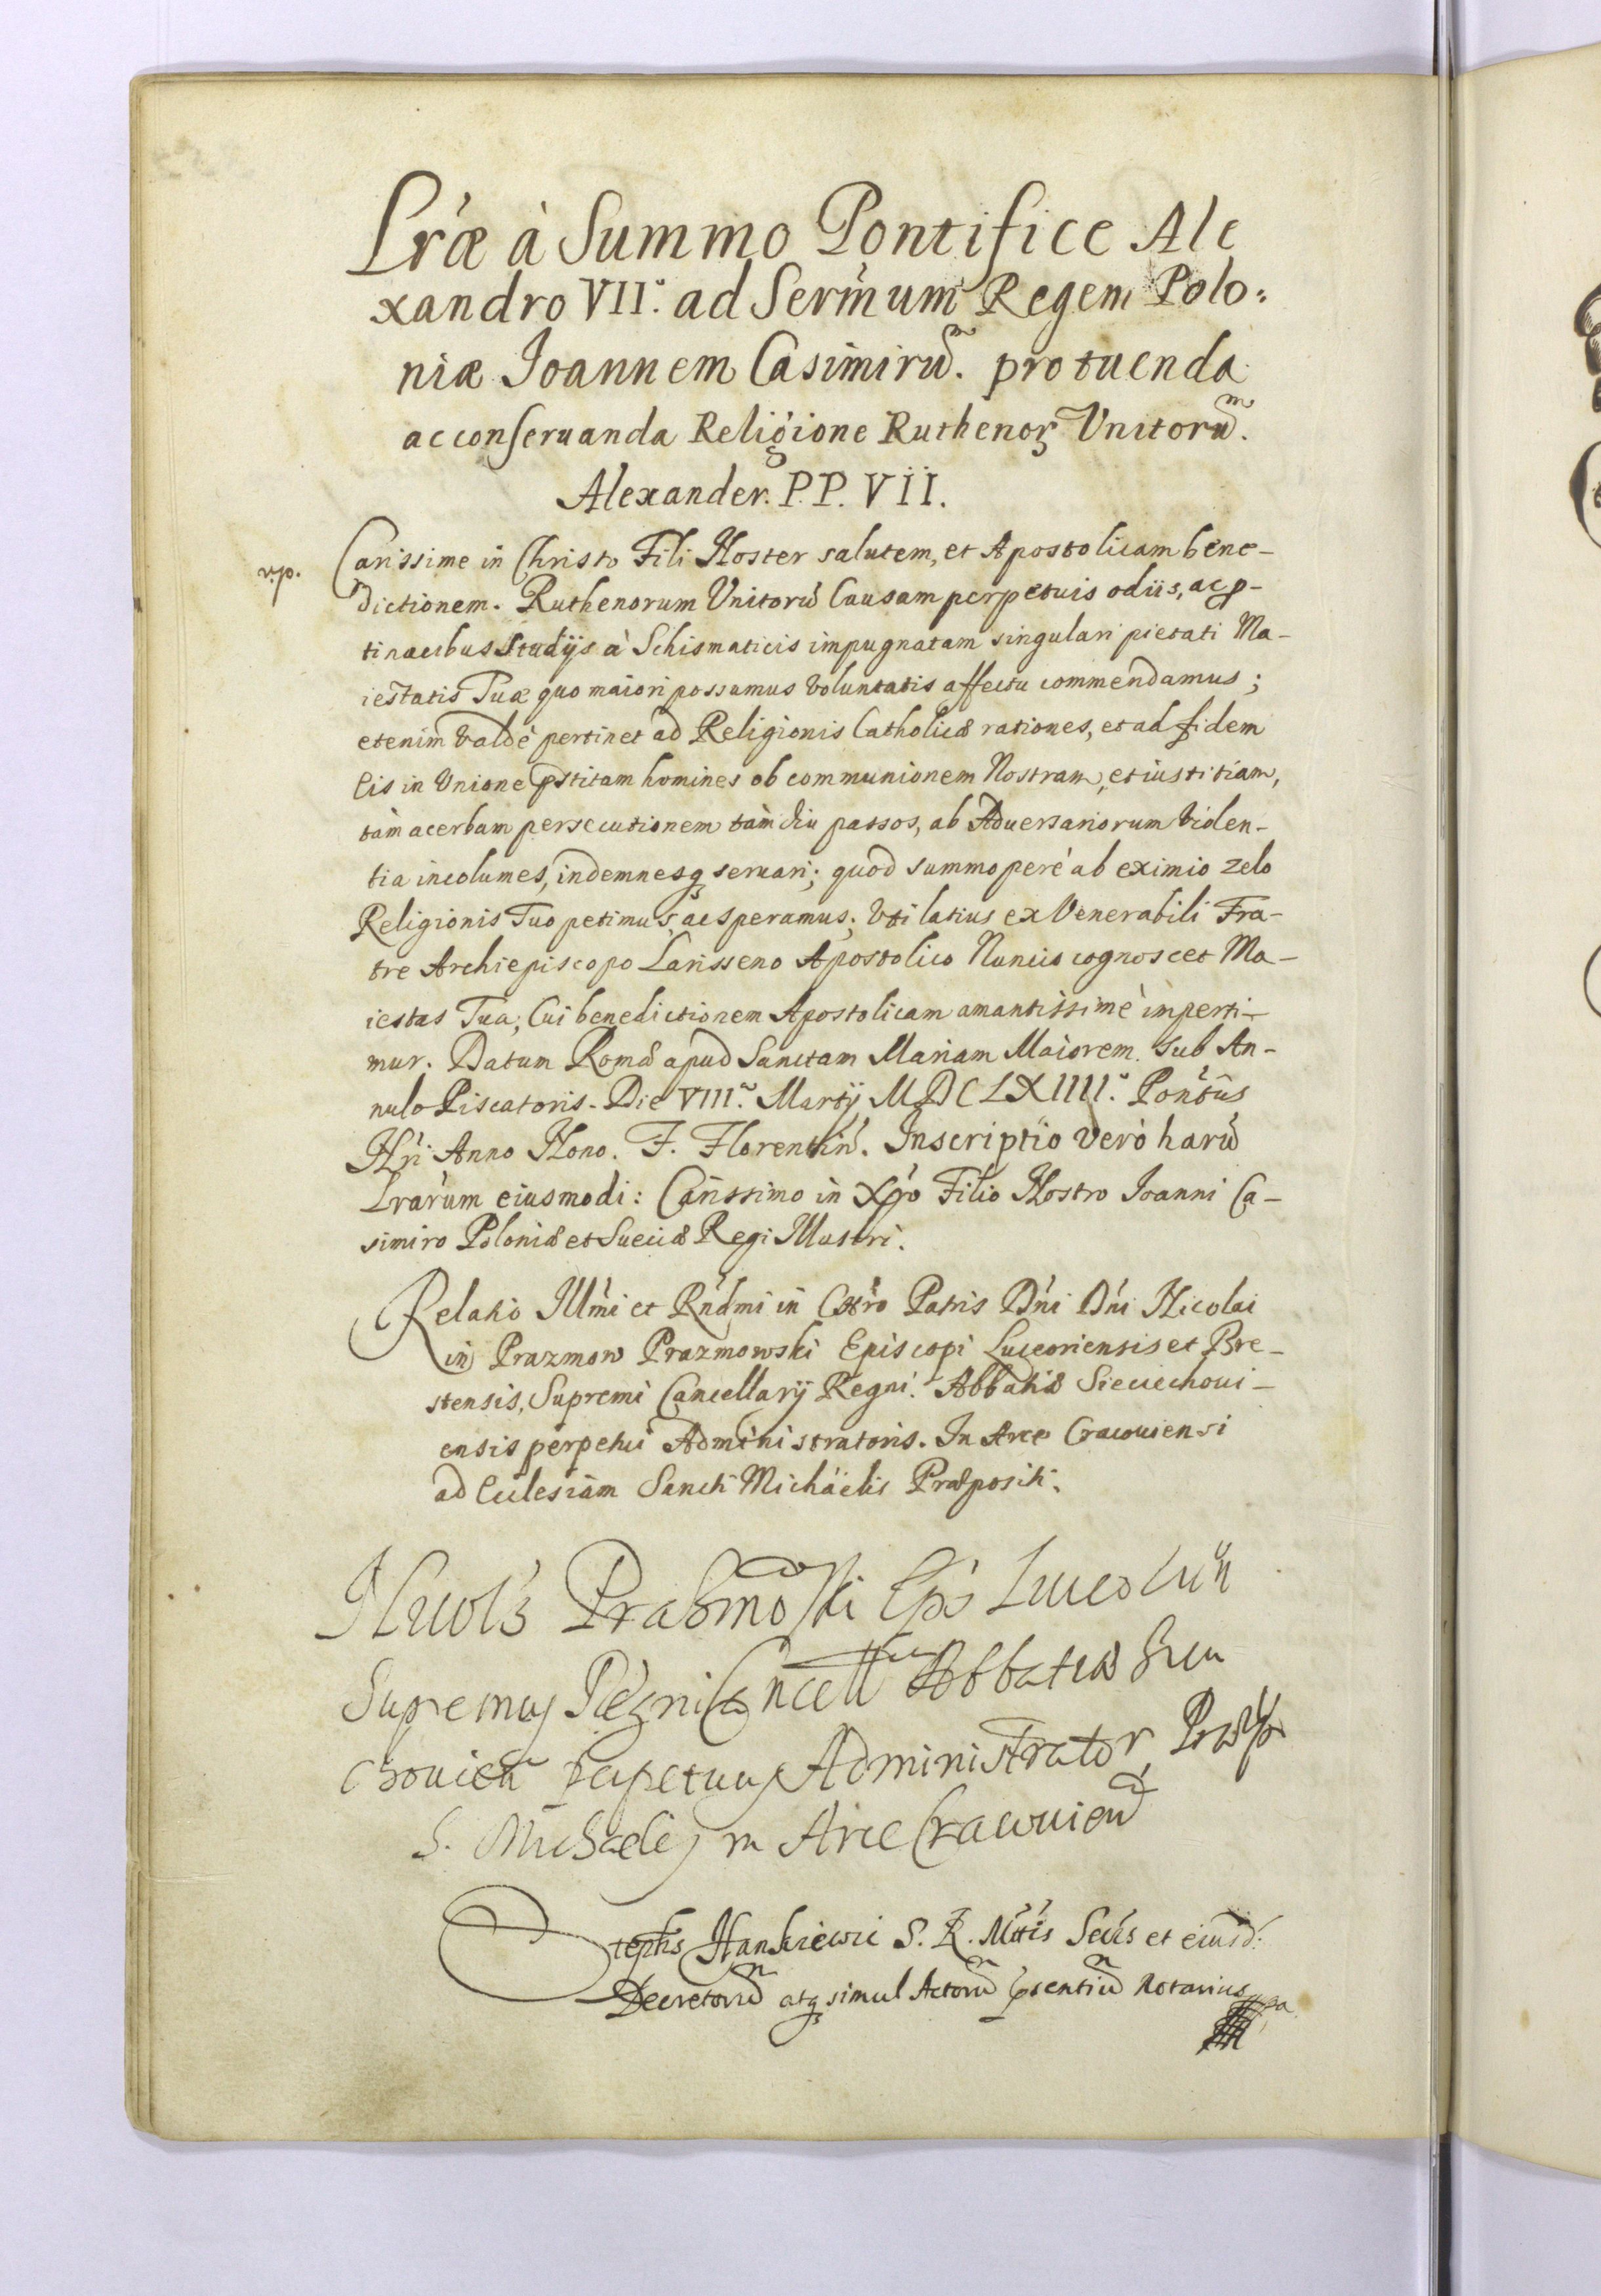 Lræ à Summo Pontifice Ale
xandro VII.º ad Sermum Regem Polo:
niæ Joannem Casimirũ. pro tuenda
ac conseruanda Religione Ruthenorꝝ Vnitorũ.
Alexander. P.P. VII.
v.p.
Carissime in Christo Fili Noster salutem, et Apostolicam bene-
dictionem. Ruthenorum Vnitorũ Causam perpetuis odiis, ac ꝑ-
tinacibus Studijs à Schismaticis impugnatam singulari pietati Ma-
iestatis Tuæ quo maiori possumus voluntatis affectu commendamus;
etenim valdè pertinet ad Religionis Catholicæ rationes, et ad fidem
Eis in Vnione p̃stitam homines ob communionem Nostram, et iustitiam,
tàm acerbam persecutionem tàm diu passos, ab Aduersariorum violen-
tia incolumes, indemnesqꝫ seruari; quod summoperè ab eximio zelo
Religionis Tuo petimus, ac speramus; Vti latius ex Venerabili Fra-
tre Archiepiscopo Larisseno Apostolico Nuncio cognoscet Ma-
iestas Tua; Cui benedictionem Apostolicam amantissimè imperti-
mur. Datum Romæ apud Sanctam Mariam Maiorem. sub An-
nulo Piscatoris. Die VIII.ª Martij MDCLXIIII.º Pontũs
Nri Anno Nono. F. Florentin̄. Inscriptio verò harũ
Lrarum eiusmodi: Carissimo in Xp̃o Filio Nostro Joanni Ca-
simiro Poloniæ et Sueciæ Regi Illustri.
Relatio Illmi et Rndmi in Chro Patris Dni Dni Nicolai
in Prazmow Prazmowski Episcopi Luceoriensis et Bre-
stensis, Supremi Cancellarij Regni. Abbatiæ Sieciechoui-
ensis perpetui Administratoris. In Arce Cracouiensi
ad Ecclesiam Sancti Michäelis Præpositi.
Supremus Regni Cancell Abbatiæ Siecie
chouien perpetuus Administrator, Præp
S. Michaelis in Arce Cracouien
Stephs Hankiewic S. R. Mttis Secrs et eiusd:
Decretorũ atqꝫ simul Actorũ p̃sentiũ Notarius